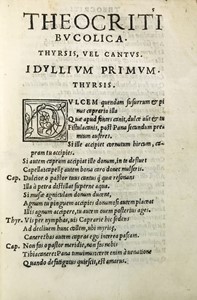 THEOCRITI
BVCOLICA.
THYRSIS, VEL CANTVS.
IDYLLIVM PRIMVM.
THYRSIS.
DVLCEM quendam susurrum & pi
nus capraria illa
Quæ apud fontes canit, dulce &
Fistula canis, post Pana secundum præ
mium auferes.
Si ille accipiet cornutum hircum, ca
pram tu accipies.
Si autem capram accipiat ille donum, in te defluet
Capella: capellæ autem bona caro donec mulseris.
Cap. Dulcior o pastor tuus cantus quàm resonans
Illa à petra distillat superne aqua.
Si musæ ouiculam donum ducent,
Agnum tu pinguem accipies donum: si autem placeat
Illis agnum accipere, tu autem ouem posterius ages.
Thy. Vis per nymphas, vis Caprarie hic sedens
Ad decliuem hunc collem, vbi myricæ,
Canere? has autem capras ego interim pascam.
Cap. Non fas o pastor meridie, non fas nobis
Tibia canere: Pana timemus: etenim à venatione
Quando defatigatus quiescit, est amarus.